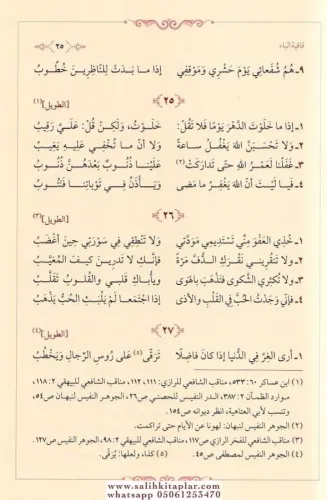 قافية الباء
٢٥
٩- هُمُ شُفَعائِي يَوْمَ حَشْرِي وَمَوْقِفِي إذا ما بَدَتْ لِلنَّاظِرِينَ خُطُوبُ
٢٥
[الطويل](١)
١- إذا ما خَلَوْتَ الدَّهْرَ يَوْمًا فَلا تَقُلْ: خَلَوْتُ، وَلَكِنْ قُلْ: عَلَيَّ رَقِيبُ
٢- وَلا تَحْسَبَنَّ اللهَ يَغْفُلُ ساعةً وَلا أنَّ ما تُخْفِي عَلَيهِ يَغِيبُ
٣- غَفَلْنا لَعَمْرُ اللهِ حتى تَدارَكَتْ(٢) عَلَيْنا ذُنُوبٌ بَعْدَهُنَّ ذُنُوبُ
٤- فَيا لَيْتَ أنَّ اللهَ يَغْفِرُ ما مَضى وَيَأْذَنُ فِي تَوْباتِنا فَنَتُوبُ
٢٦
[الطويل](٣)
١- خُذِي العَفْوَ مِنِّي تَسْتَدِيمِي مَوَدَّتي وَلا تَنْطِقِي فِي سَوْرَتِي حِينَ أَغْضَبُ
٢- ولا تَنْقُرِينِي نَقْرَكِ الدُّفَّ مَرَّةً فإنَّكِ لا تَدرِينَ كيفَ المُغَيَّبُ
٣- ولا تُكثِرِي الشَّكوى فتَذْهَبَ بالهَوى ويأباكِ قلبي والقُلُوبُ تَقَلَّبُ
٤- فإنِّي وَجَدْتُ الحُبَّ في القَلْبِ والأذى إذا اجتَمَعا لَمْ يَلْبَثِ الحُبُّ يَذْهَبُ
٢٧
[الطويل](٤)
١- أرى الغِرَّ في الدُّنيا إذا كانَ فاضِلًا تَرَقَّى(٥) على رُوسِ الرِّجالِ وَيَخْطُبُ
(١) ابن عساكر ٦٠: ٥٣٣، مناقب الشافعي للرازي: ١١١، ١١٢، مناقب الشافعي للبيهقي ٢: ١١٨،
موارد الظمآن ٢: ٣٨٧، الدر النفيس للحصني ص٢٦، الجوهر النفيس لنبهان ص٥٤،
وتنسب لأبي العتاهية، انظر ديوانه ص١٥٤.
(٢) الجوهر النفيس لنبهان: لهونا عن الأيام حتى تراكمت.
(٣) مناقب الشافعي للفخر الرازي ص١١٧، مناقب الشافعي للبيهقي ٢: ٩٨، الجوهر النفيس ص١٢٧.
(٤) الجوهر النفيس لمصطفى ص٤٥. (٥) كذا، ولعلها: يُرَقَّى.
www.salihkitaplar.com
whatsapp 05061253470